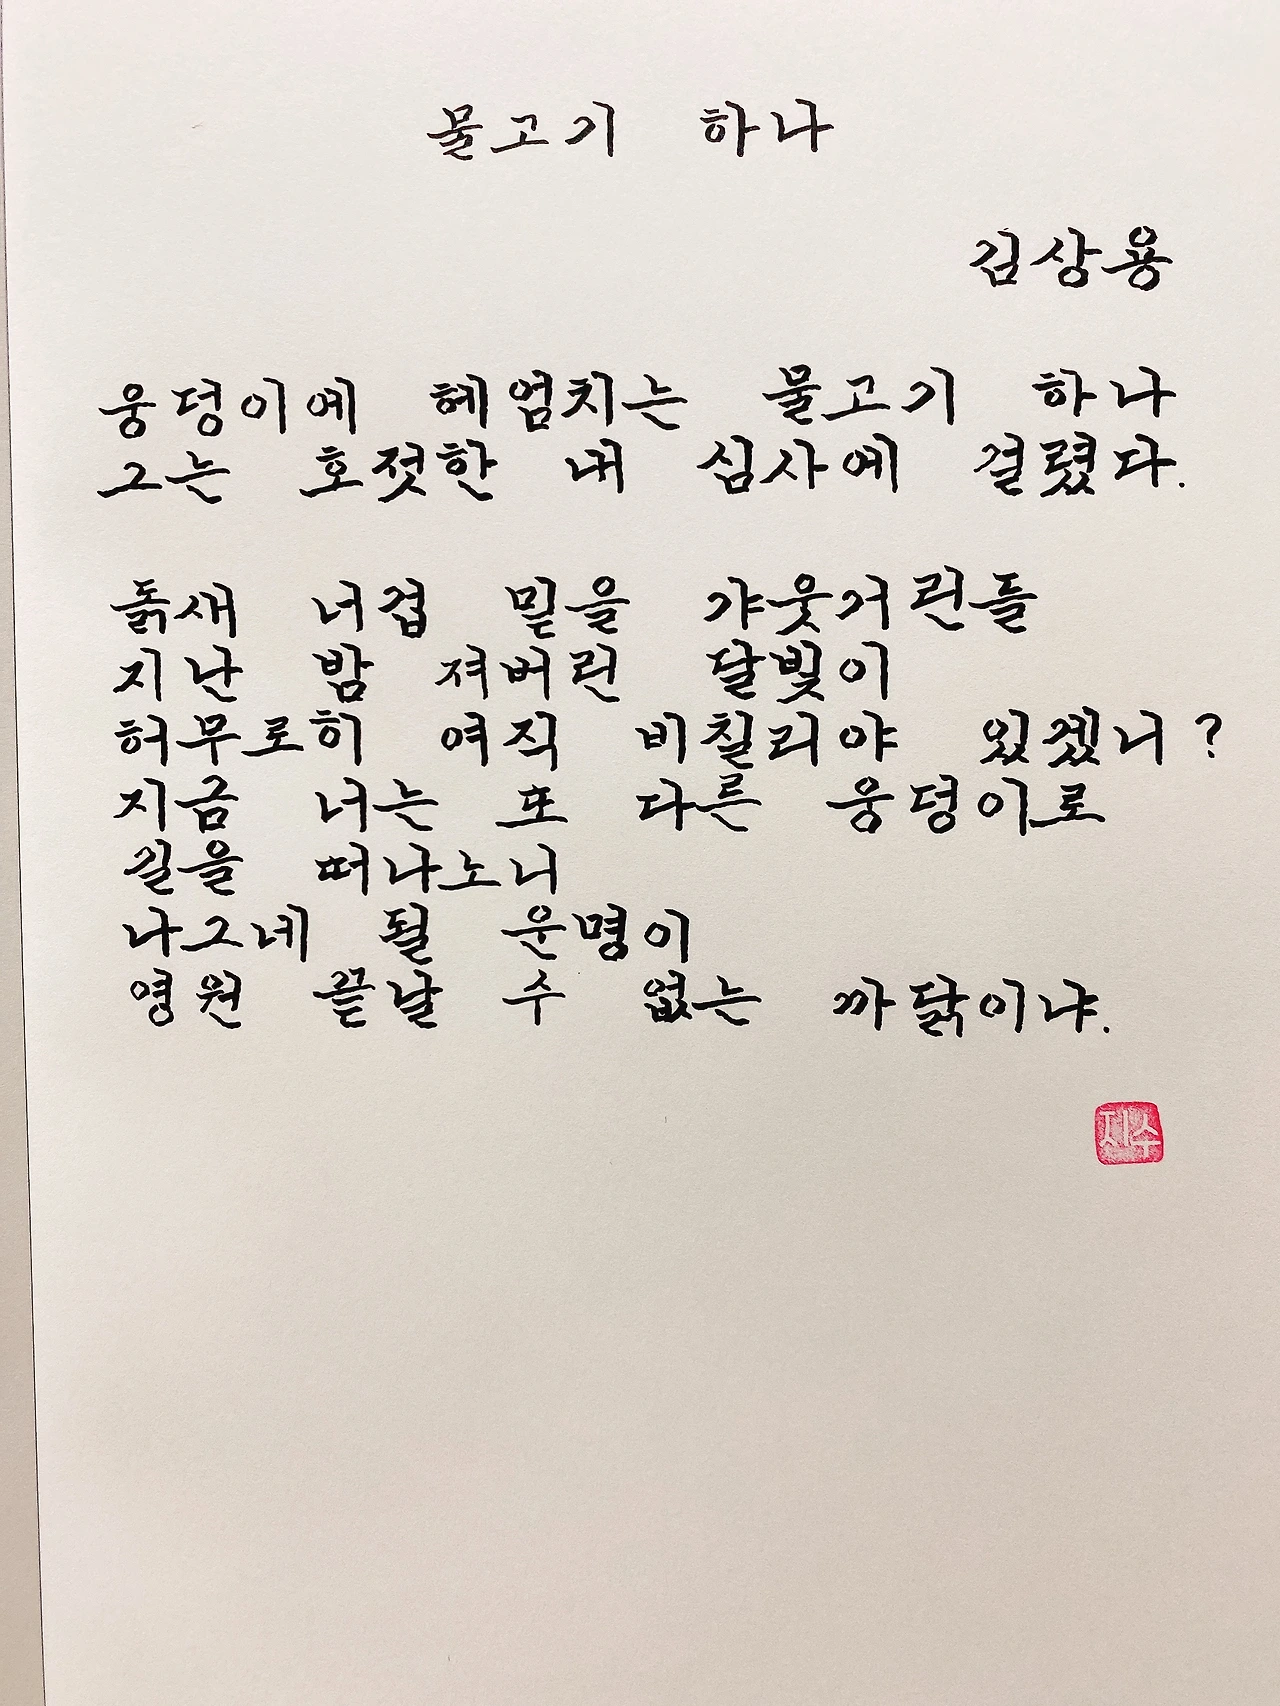 물고기 하나
김상용
웅덩이에 헤엄치는 물고기 하나
그는 호젓한 내 심사에 걸렸다.
돍새 너겁 밑을 갸웃거린들
지난 밤 져버린 달빛이
허무로히 여직 비칠리야 있겠니?
지금 너는 또 다른 웅덩이로
길을 떠나노니
나그네 될 운명이
영원 끝날 수 없는 까닭이냐.
지수